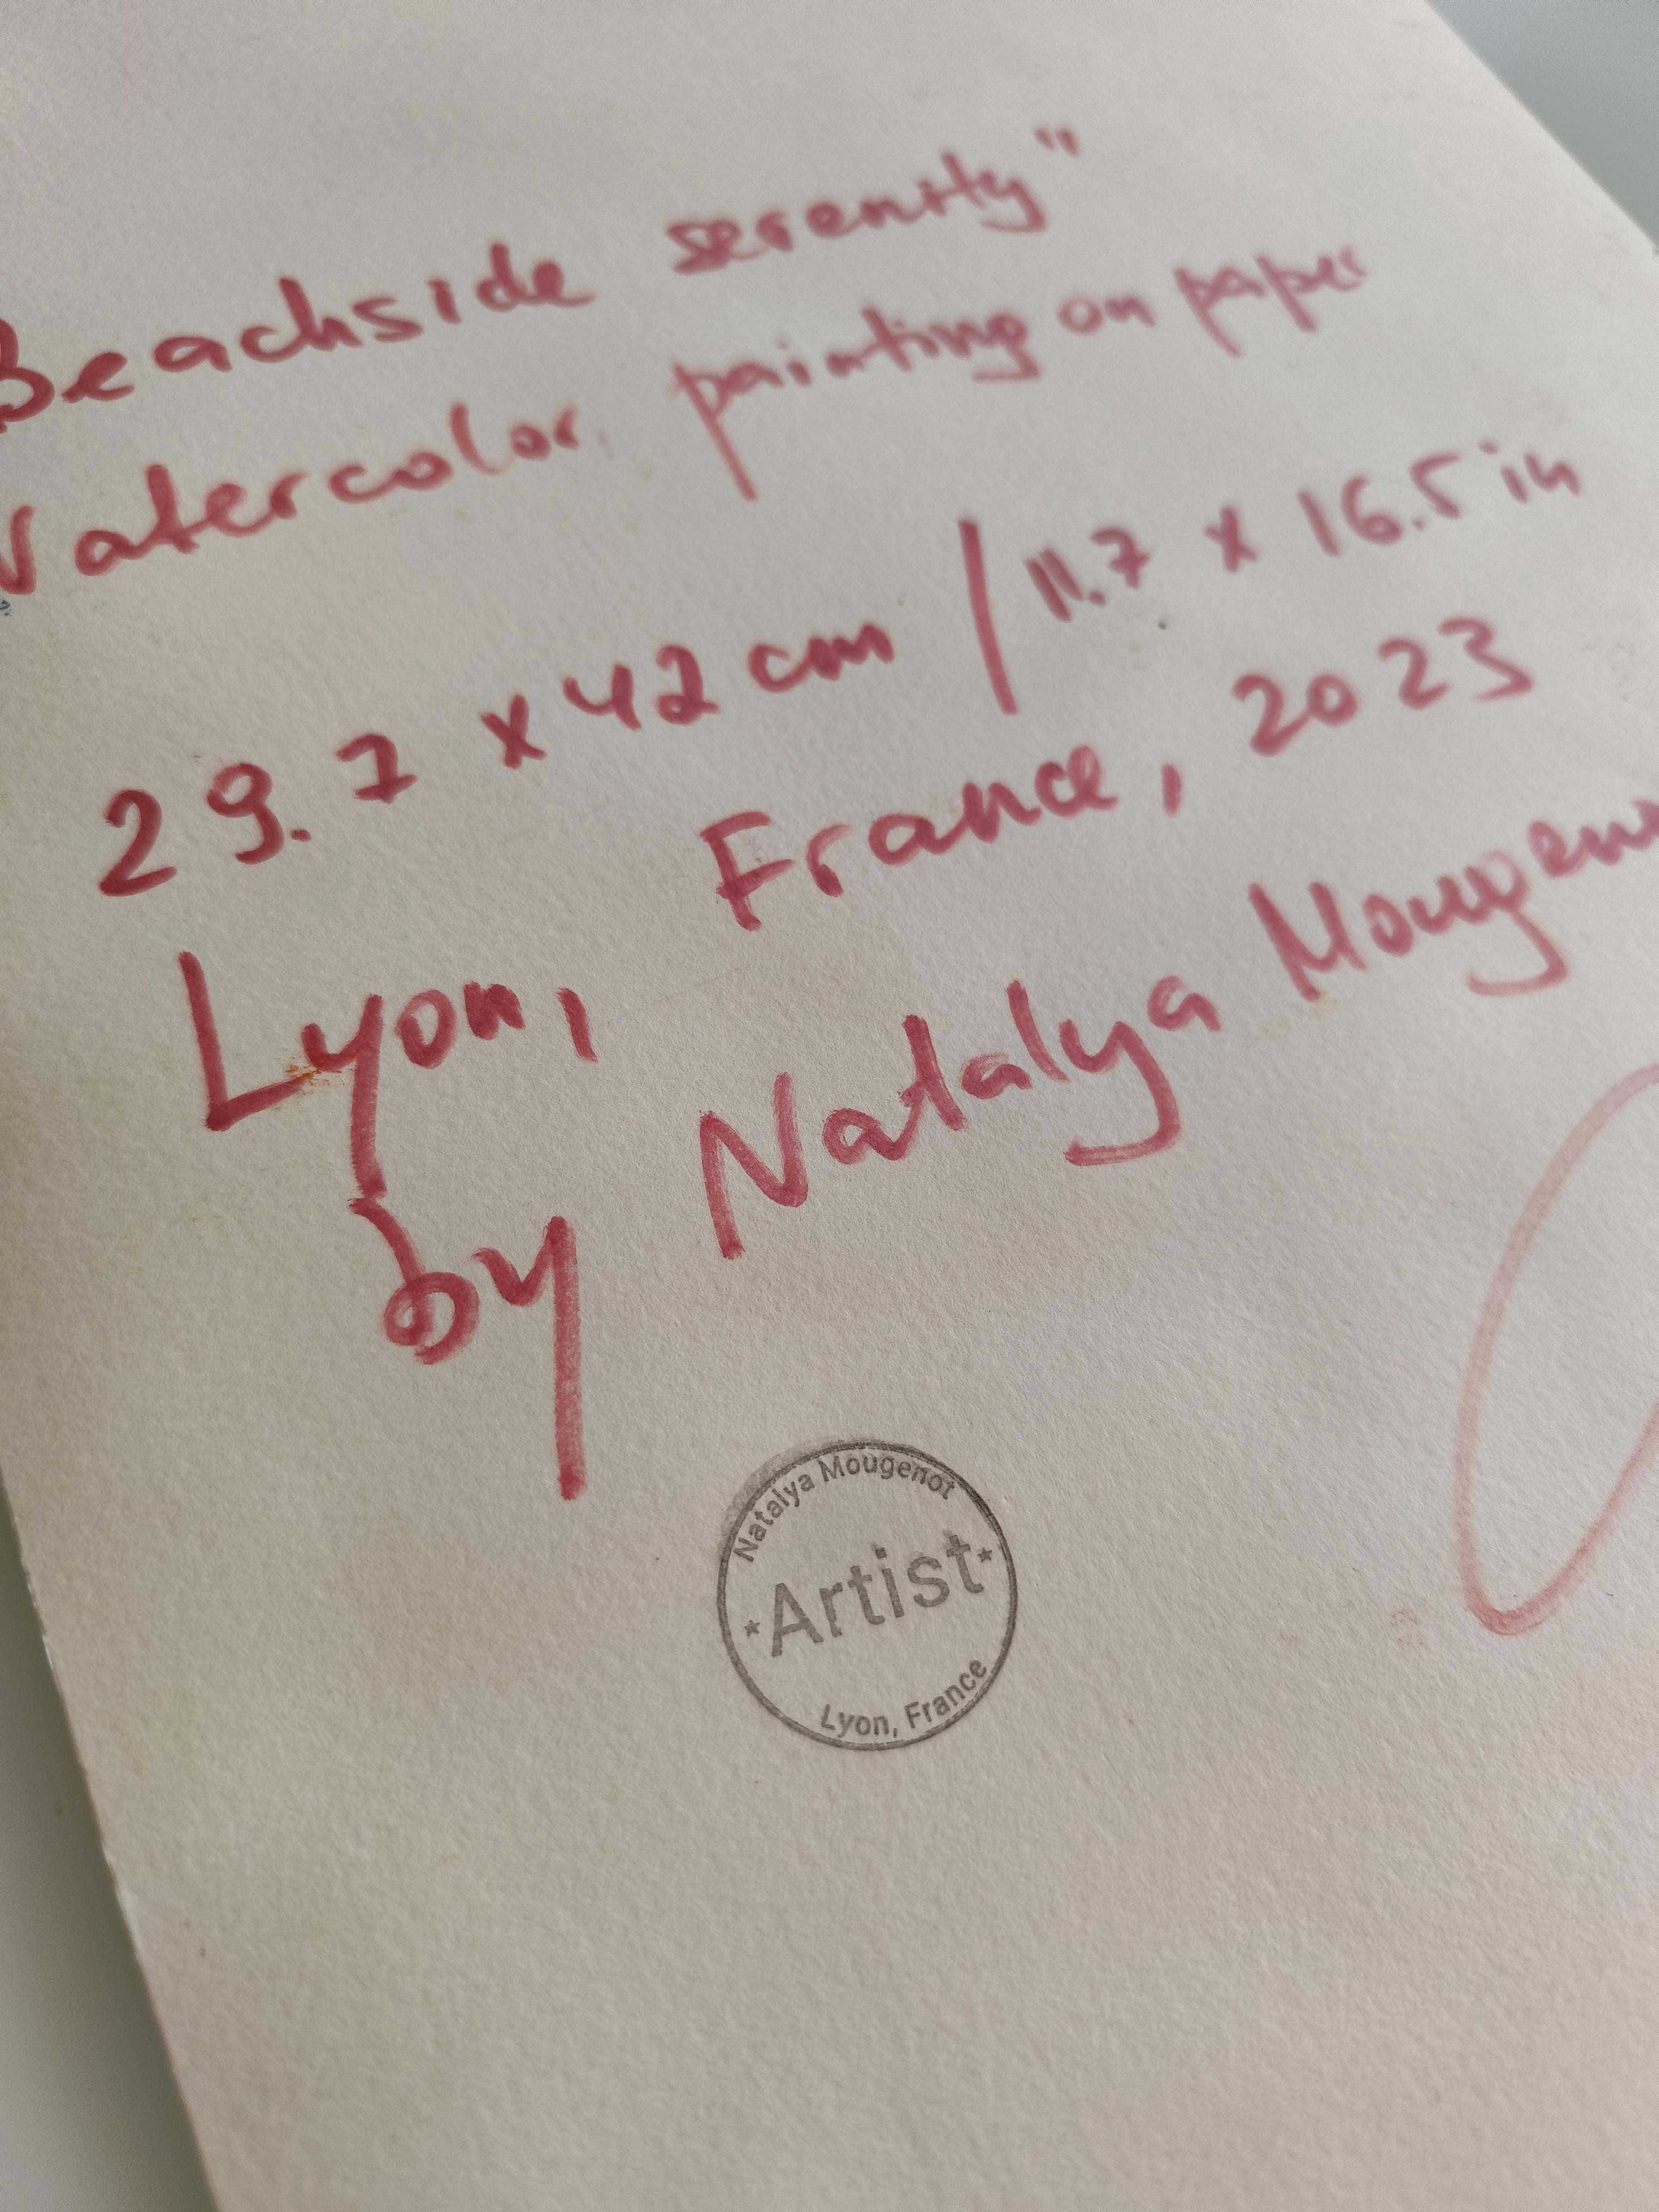 Beachside serenity"
Watercolor painting on paper
29.7 x 42 cm / 11.7 x 16.5 in
Lyon, France, 2023
by Natalya Mougeno
Natalya Mougenot
Artist
Lyon, France